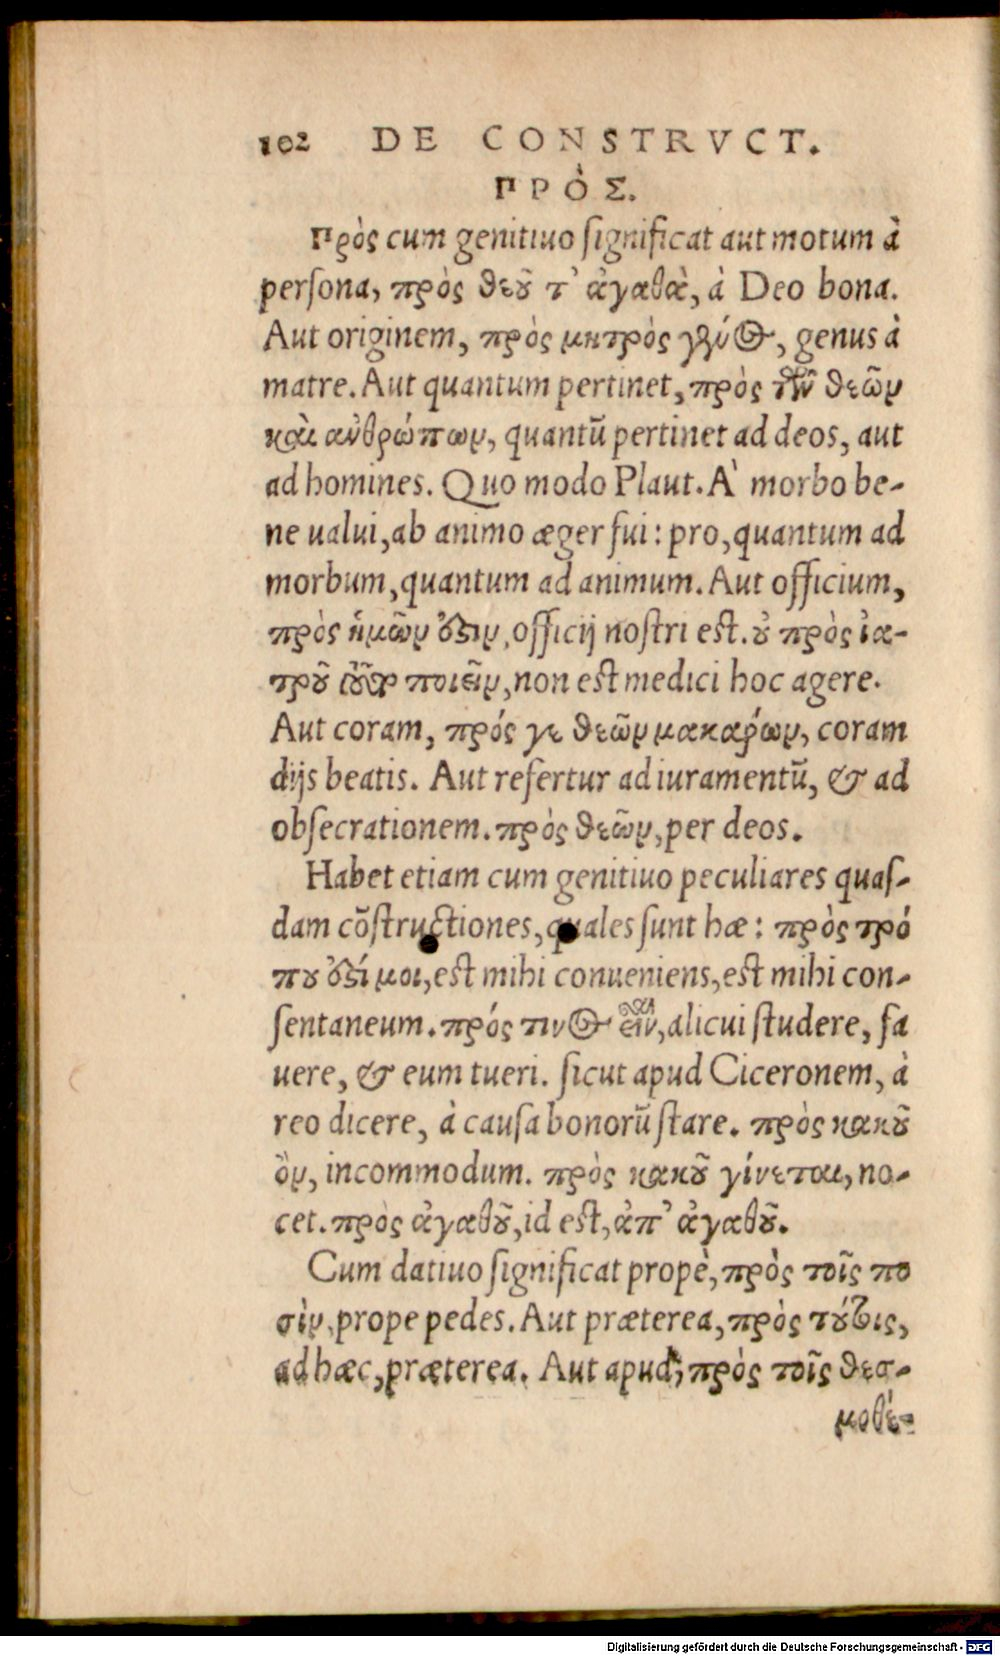 102 DE CONSTRVCT.
ΠΡῸΣ.
Πρὸς cum genitiuo significat aut motum à
persona, πρὸς θεοῦ τ' ἀγαθὰ, à Deo bona.
Aut originem, πρὸς μητρὸς γένος, genus à
matre. Aut quantum pertinet, πρὸς τῶν θεῶν
καὶ ἀνθρώπων, quantū pertinet ad deos, aut
ad homines. Quo modo Plaut. A' morbo be-
ne ualui, ab animo æger fui: pro, quantum ad
morbum, quantum ad animum. Aut officium,
πρὸς ἡμῶν ὅξιν, officij nostri est. οὐ πρὸς ἰα-
τροῦ ποιεῖν, non est medici hoc agere.
Aut coram, πρός γε θεῶν μακαρων, coram
dijs beatis. Aut refertur ad iuramentū, & ad
obsecrationem. πρὸς θεῶν, per deos.
Habet etiam cum genitiuo peculiares quas-
dam cōstructiones, quales sunt hæ: πρὸς τρό
που ὅξί μοι, est mihi conueniens, est mihi con-
sentaneum. πρός τινος εἶναι, alicui studere, fa
uere, & eum tueri. sicut apud Ciceronem, à
reo dicere, à causa bonorū stare. πρὸς κακοῦ
ὂν, incommodum. πρὸς κακοῦ γίνεται, no-
cet. πρὸς ἀγαθοῦ, id est, ἀπ' ἀγαθοῦ.
Cum datiuo significat propè, πρὸς τοῖς πο
σὶν, prope pedes. Aut præterea, πρὸς τούτοις,
ad hæc, præterea. Aut apud, πρὸς τοῖς θεσ-
μοθέ-
Digitalisierung gefördert durch die Deutsche Forschungsgemeinschaft - DFG